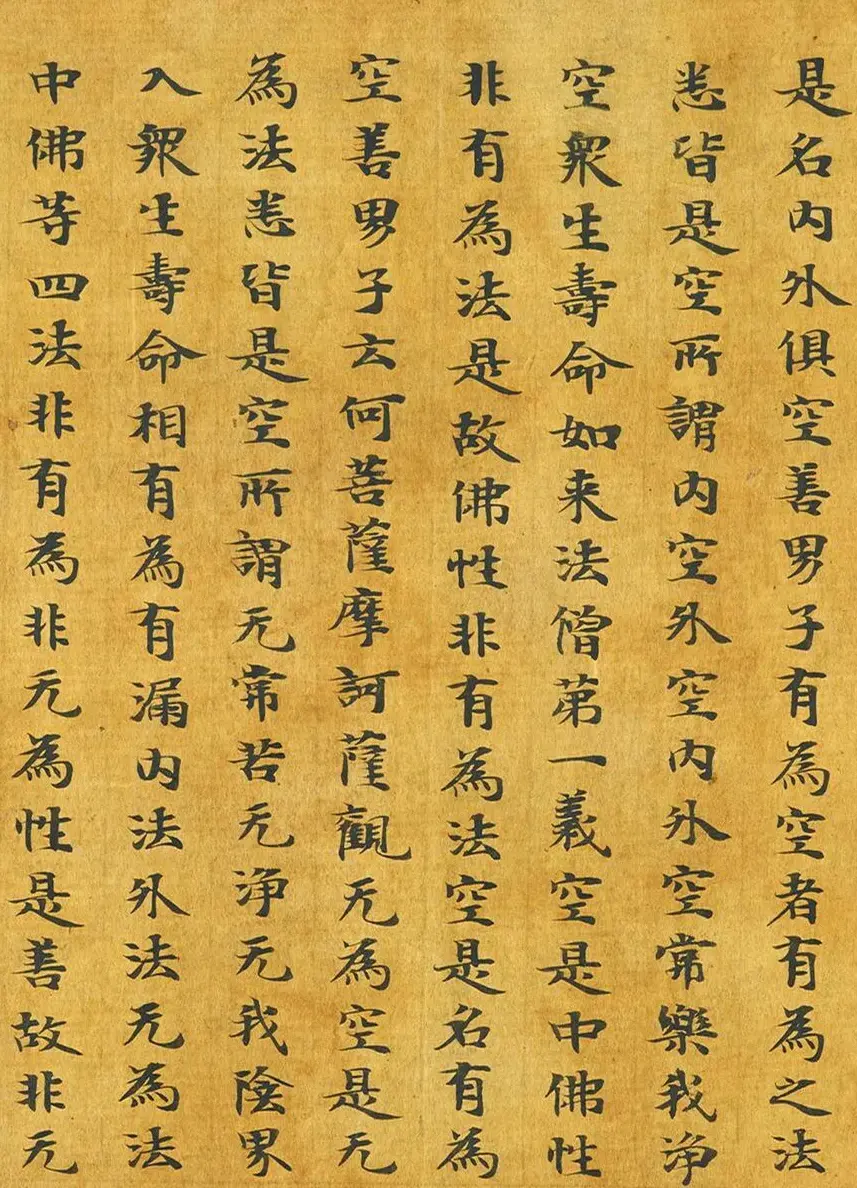 是名内外俱空善男子有為空者有為之法
悉皆是空所謂内空外空内外空常樂我净
空衆生壽命如来法僧第一義空是中佛性
非有為法是故佛性非有為法空是名有為
空善男子云何菩薩摩訶薩觀无為空是无
為法悉皆是空所謂无常苦无净无我陰界
入衆生壽命相有為有漏内法外法无為法
中佛等四法非有為非无為性是善故非无